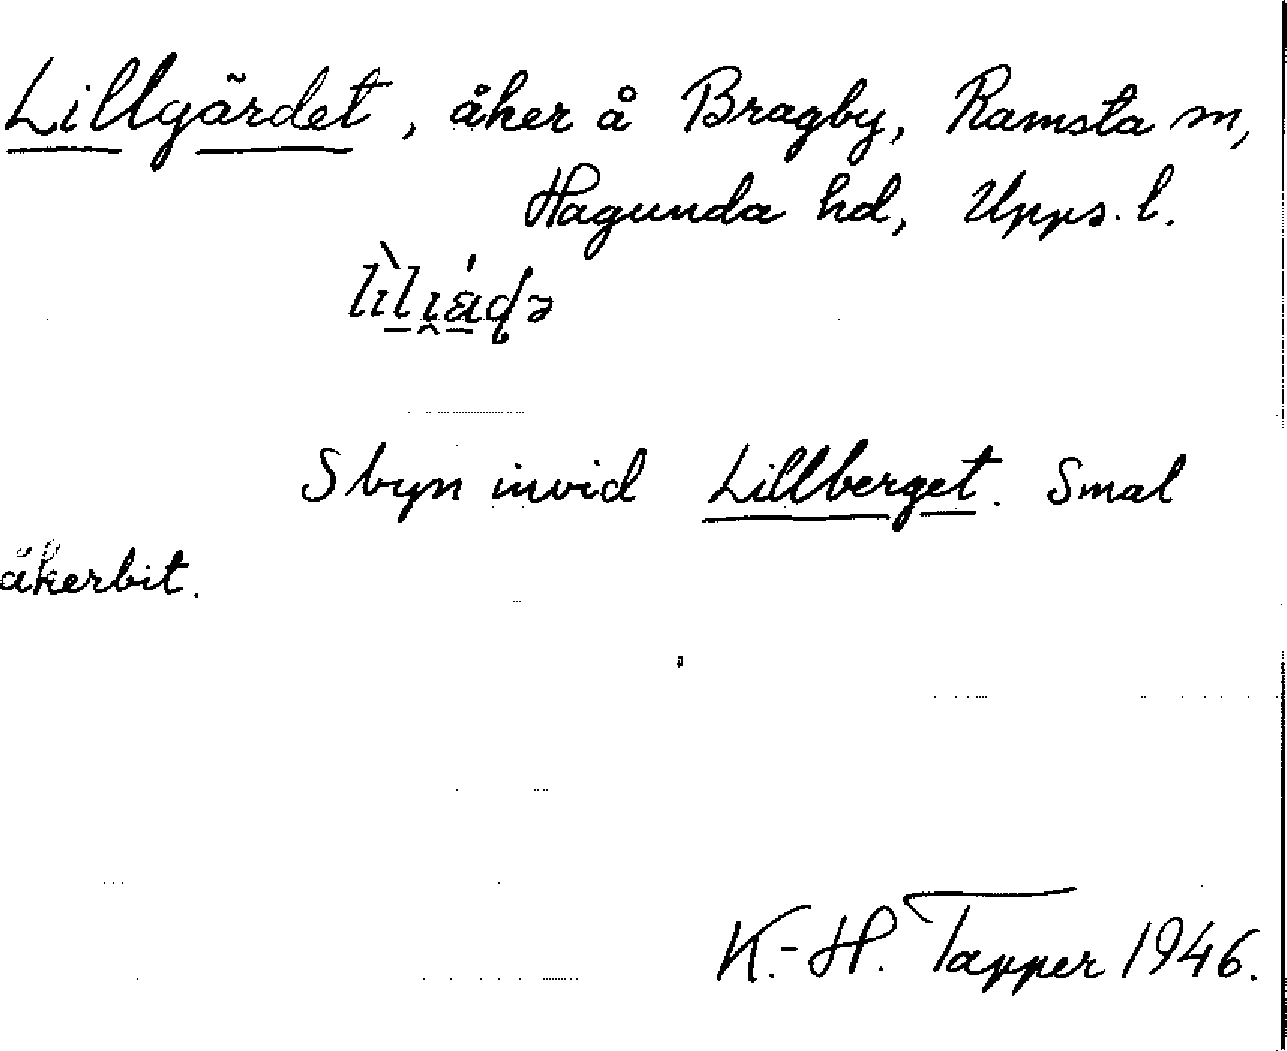 Lillgärdet, åker å Bragby, Ramsta sn,
Hagunda hd, Upps. l.
S byn invid Lillberget. Smal
åkerbit.
K.-H. Tapper 1946.